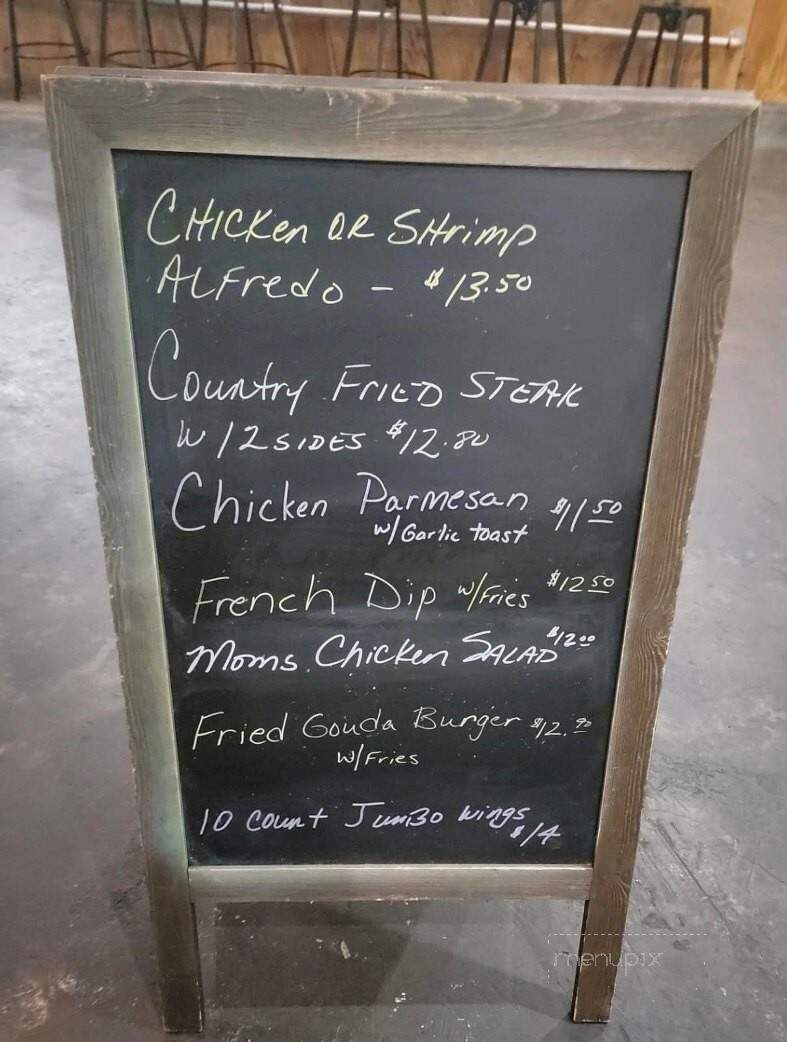 Chicken OR Shrimp
Alfredo - $13.50
Country Fried Steak
W/2 SIDES $12.80
Chicken Parmesan $11 50
w/Garlic toast
French Dip w/Fries $12 50
Moms Chicken SALAD $12 00
Fried Gouda Burger $12. 90
w/Fries
10 count Jumbo wings
$14
menupix